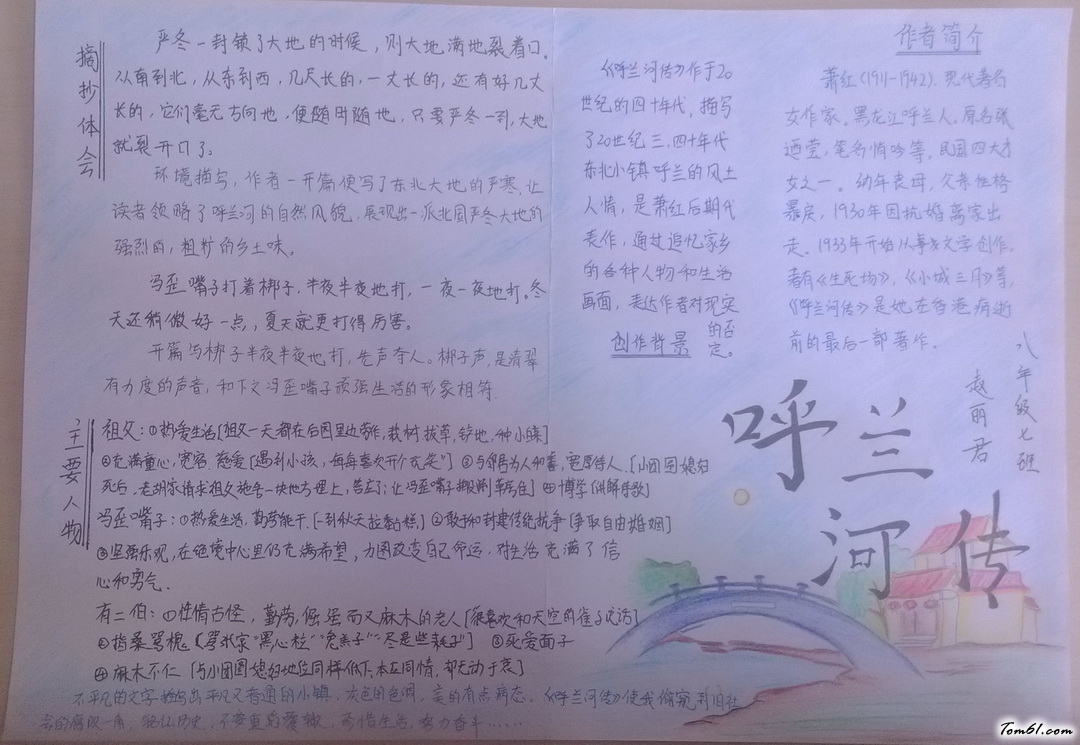 摘抄体会
严冬一封锁了大地的时候，则大地满地裂着口。
从南到北，从东到西，几尺长的，一丈长的，还有好几丈
长的，它们毫无方向地，便随时随地，只要严冬一到，大地
就裂开口了。
环境描写，作者一开篇便写了东北大地的严寒，让
读者领略了呼兰河的自然风貌，展现出一派北国严冬大地的
强烈的，粗犷的乡土味。
冯歪嘴子打着梆子，半夜半夜地打，一夜一夜地打。冬
天还稍微好一点，夏天就更打得厉害。
开篇写梆子半夜半夜地打，先声夺人。梆子声，是清翠
有力度的声音，和下文冯歪嘴子顽强生活的形象相符.
主要人物
祖父：①热爱生活[祖父一天都在后园里边劳作，栽树，拔草，铲地，种小菜]
②充满童心，宽容，慈爱[遇到小孩，每每喜欢开个玩笑"] ③与邻居为人和善，宽厚待人.[小团圆媳妇
死后，老胡家请求祖父施舍一块地方埋上，答应了；让冯歪嘴子搬到草房住] ④博学[讲解诗歌]
冯歪嘴子：①热爱生活，勤劳能干.[一到秋天拉黏糕] ②敢于和封建传统抗争[争取自由婚姻]
③坚强乐观，在绝境中心里仍充满希望，力图改变自己命运，对生活充满了信
心和勇气.
有二伯：①性情古怪，勤劳，倔强而又麻木的老人[很喜欢和天空的雀子说话]
②指桑骂槐 ③死爱面子
④麻木不仁 [与小团圆媳妇地位同样低下，本应同情，却无动于衷]
不平凡的文字描写出平凡又普通的小镇，灰色的色调，美的有点病态。《呼兰河传》使我偷窥到旧社
会的腐败一角，努力奋斗……
《呼兰河传》作于20
世纪的四十年代，描写
了20世纪三、四十年代
东北小镇呼兰的风土
人情，是萧红后期代
表作，通过追忆家乡
的各种人物和生活
画面，表达作者对现实
的否定。
创作背景
作者简介
萧红(1911-1942)，现代著名
女作家。黑龙江呼兰人。原名张
迺莹，笔名悄吟等，民国四大才
女之一。幼年丧母，父亲性格
暴戾，1930年因抗婚离家出
走。1933年开始从事文学创作。
著有《生死场》，《小城三月》等，
《呼兰河传》是她在香港病逝
前的最后一部著作。
八年级七班
赵丽君
呼兰
河传
Tom61.com